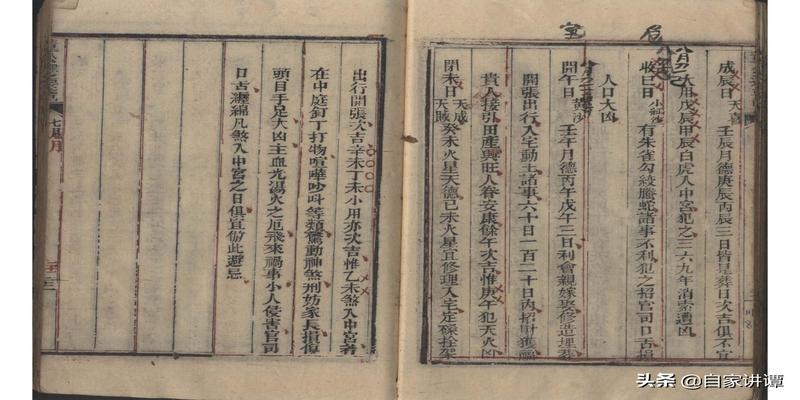 成辰日 天喜 壬辰月德庚辰丙辰三日皆是葬日次吉俱不宜
大用戊辰甲辰白虎入中宮犯之三六九年消索遭凶
收巳日 小紅沙 有朱雀勾絞螣蛇諸事不利犯之招官司口舌損
人口大凶
開午日 黃沙 壬午月德丙午戊午三日利會親嫁娶修造埋葬
開張出行入宅動土諸事六十日一百二十日內招財獲福
貴人接引田產興旺人眷安康餘午次吉惟庚午犯天火凶
閉未日 天成 天賊 癸未火星天德己未火星宜修理入宅定磉拴架
出行開張次吉辛未丁未小用亦次吉惟乙未煞入中宮若
在中庭釘丁打物喧嘩吵叫等類驚動神煞刑妨家長損傷
頭目手足大凶主血光湯火之厄飛來禍事小人侵害官司
口舌瀝綿凡煞入中宮之日俱宜倣此避忌
七月
头条 @自家讲谭